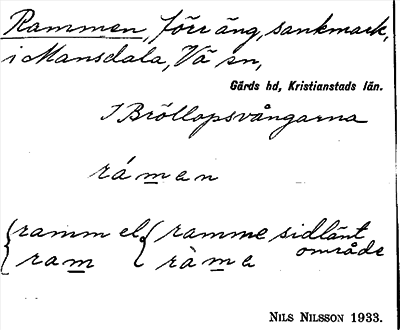 Rammen, förr äng, sankmark,
i Mansdala, Vä sn,
Gärds hd, Kristianstads län.
I Bröllopsvångarna
rámen
{ramm el. {ramme sidlänt område
{ram {ràme
NILS NILSSON 1933.